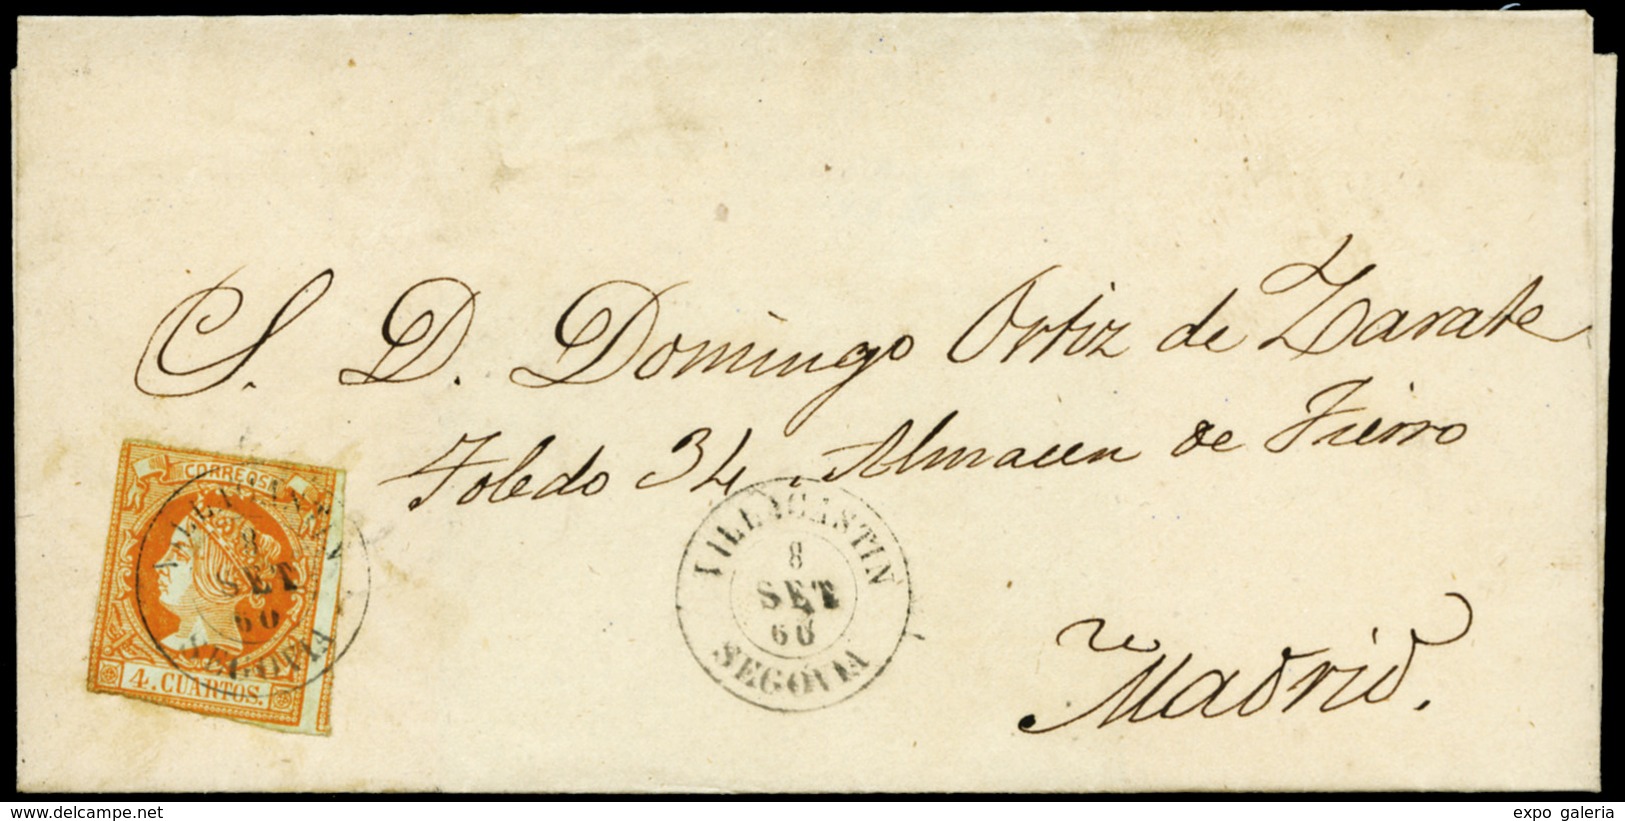 S. D. Domingo Ortiz de Zarate
Toledo 34, Almacen de Fierro
Madrid.
CORREOS
VILLACASTIN
8
SET
60
SEGOVIA
4. CUARTOS.
VILLACASTIN
8
SET
60
SEGOVIA
www.delcampe.net
expo galeria